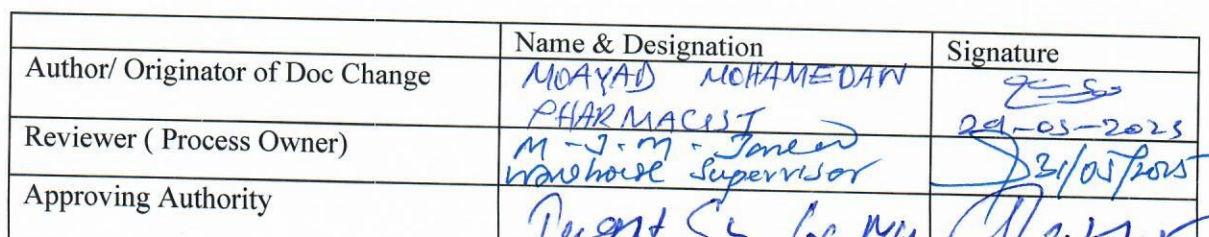 Name & Designation Signature
Author/ Originator of Doc Change MOAYAD MOHAMEDAN
PHARMACIST 29-05-2025
Reviewer ( Process Owner) M-J.M-
warehouse supervisor 31/05/2025
Approving Authority